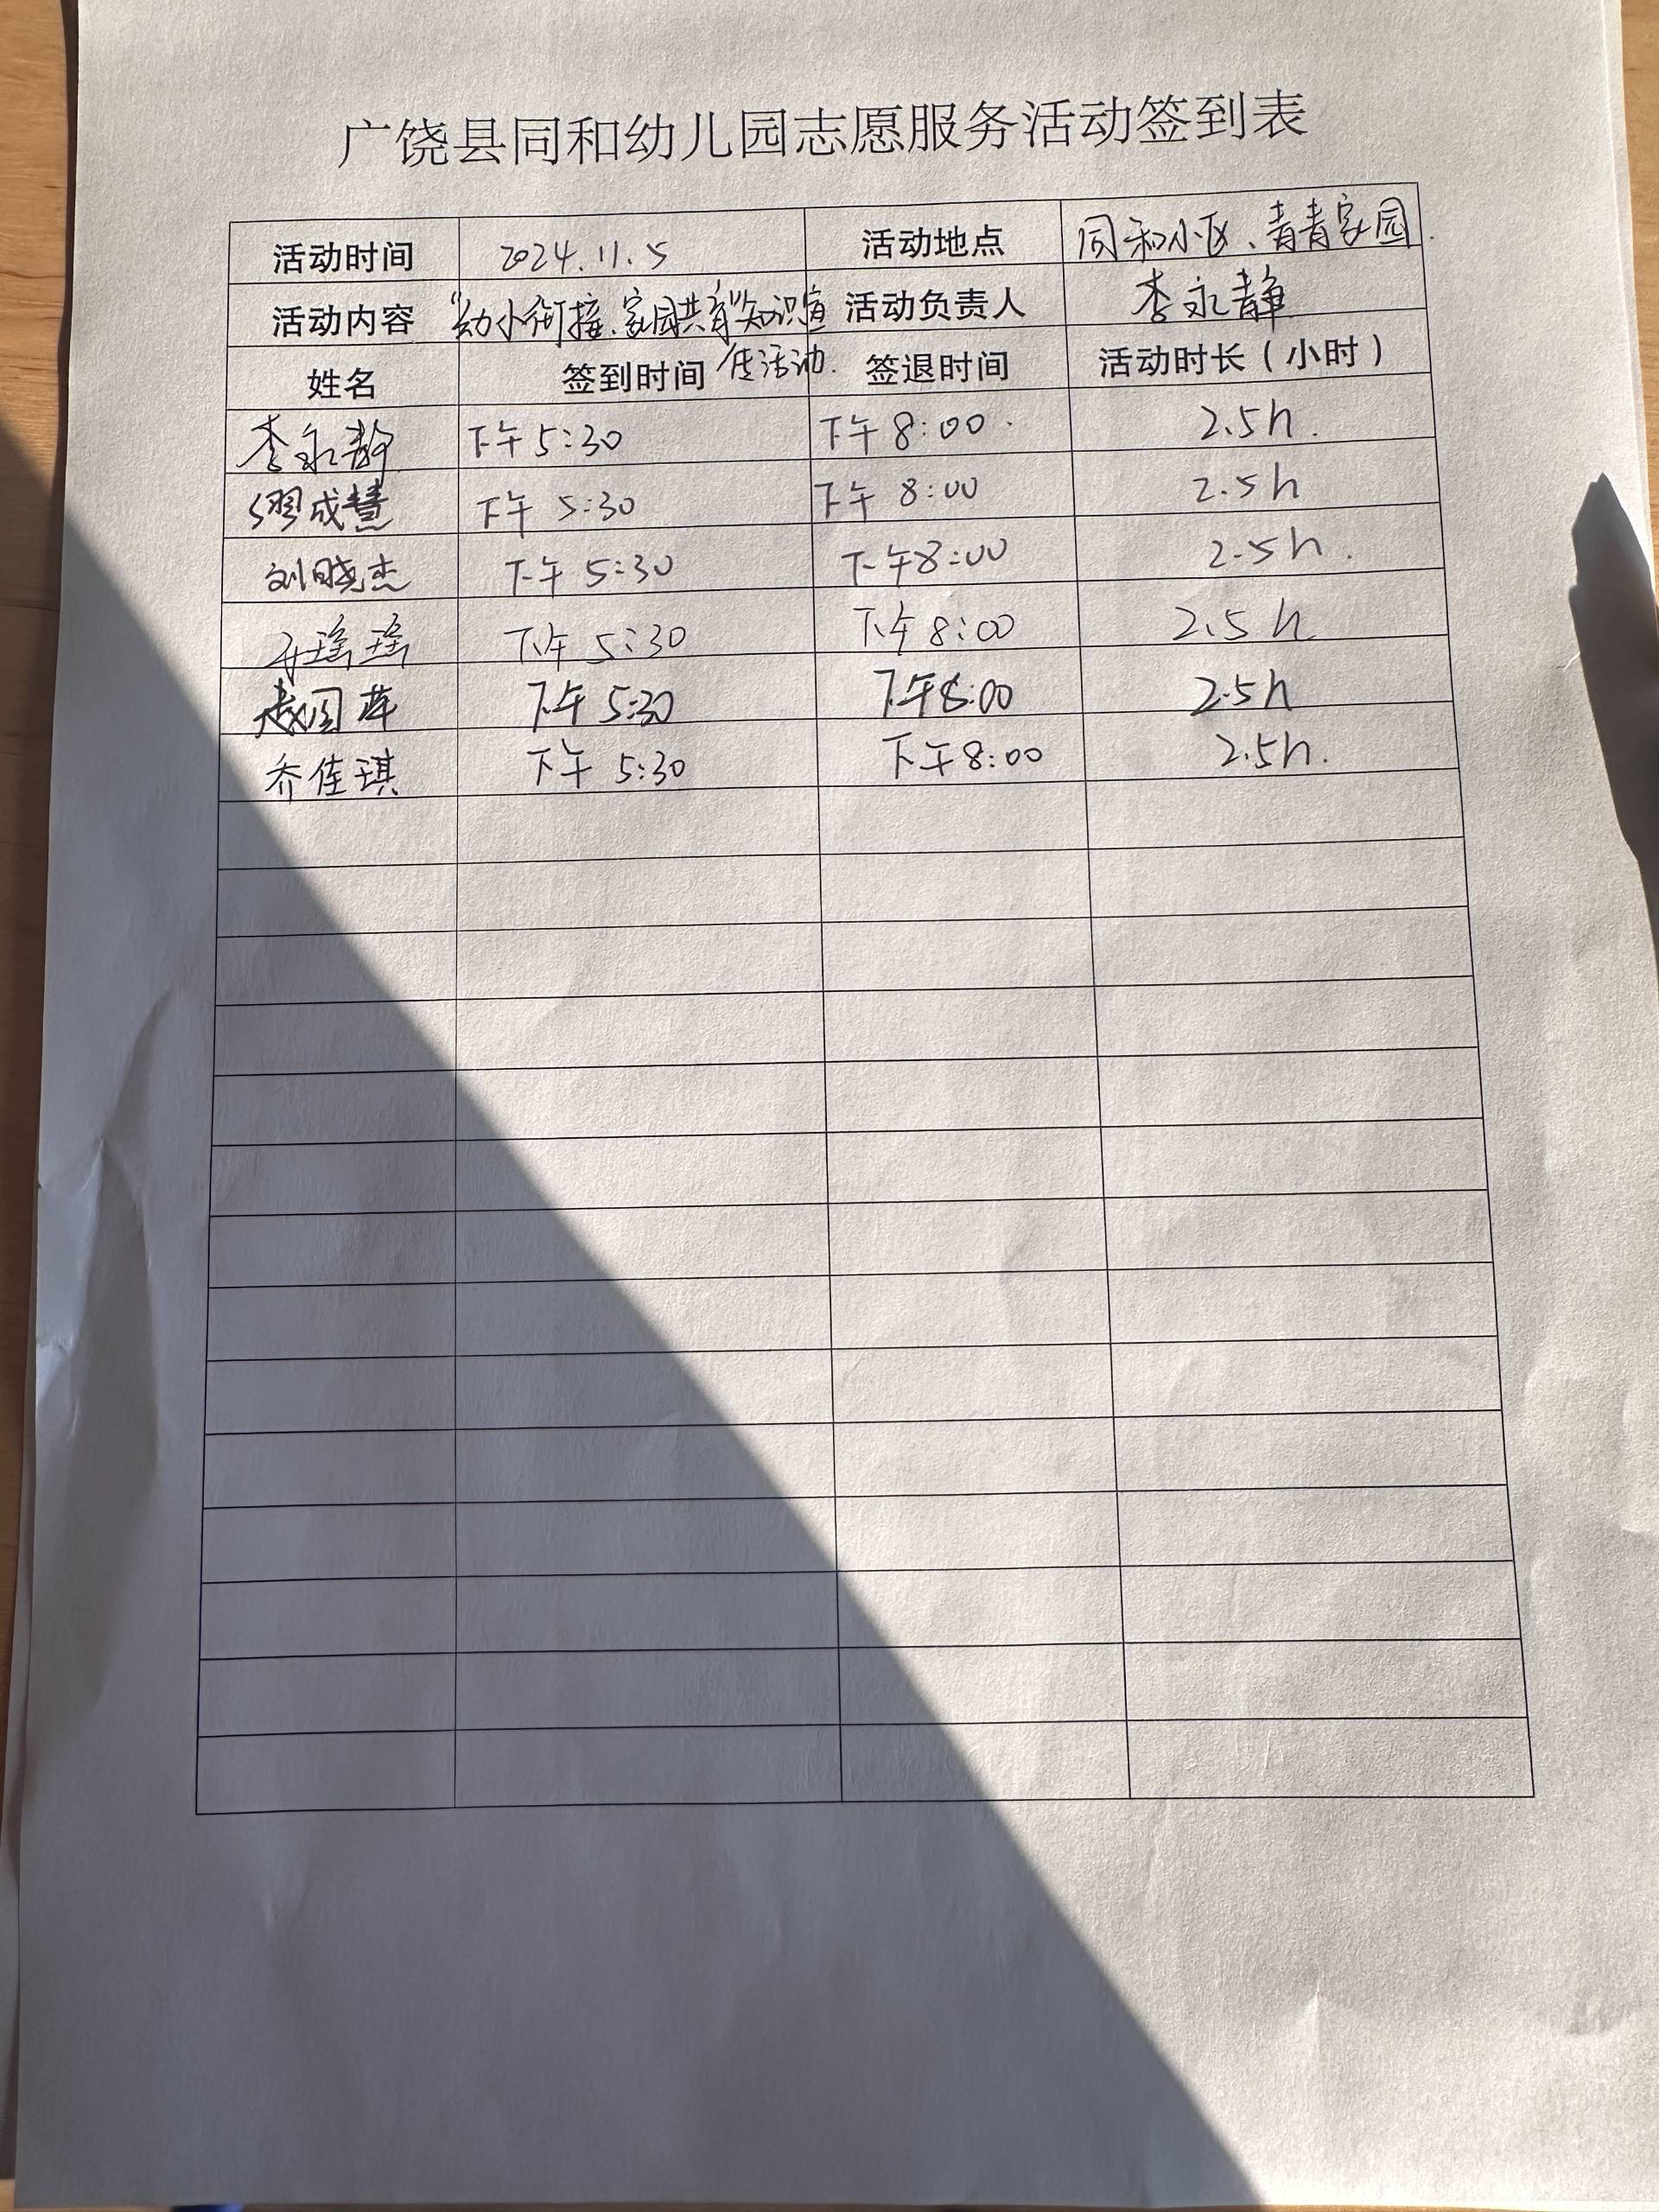 广饶县同和幼儿园志愿服务活动签到表
活动时间 2024.11.5 活动地点 同和小区、青青家园.
活动内容 "幼小衔接、家园共育"知识宣 活动负责人 李永静
传活动.
姓名 签到时间 签退时间 活动时长（小时）
李永静 下午 5:30 下午 8:00. 2.5h.
缪成慧 下午 5:30 下午 8:00 2.5h
刘晓杰 下午 5:30 下午8:00 2.5h.
瑶瑶 下午 5:30 下午8:00 2.5h
下午 5:30 下午8:00 2.5h
乔佳琪 下午 5:30 下午8:00 2.5h.